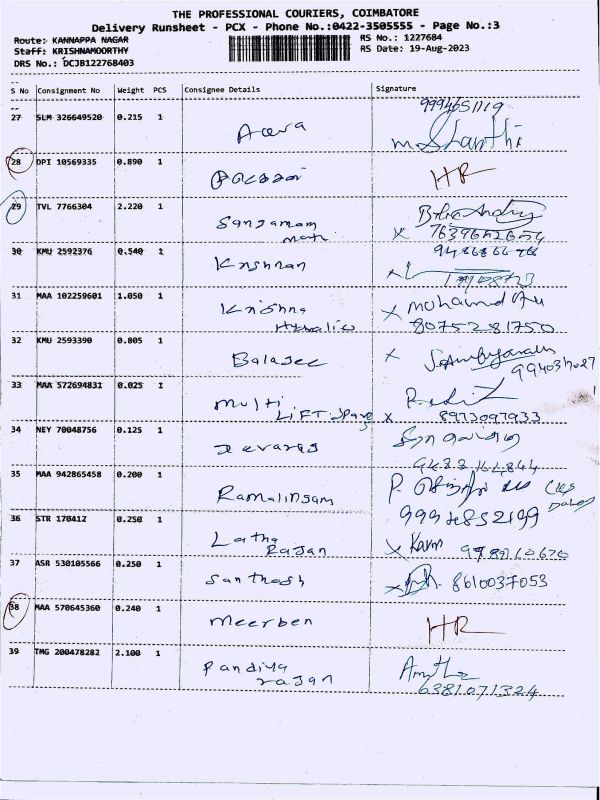 THE PROFESSIONAL COURIERS, COIMBATORE
Delivery Runsheet - PCX - Phone No.:0422-3505555 - Page No.:3
Route: KANNAPPA NAGAR RS No.: 1227684
Staff: KRISHNAMOORTHY RS Date: 19-Aug-2023
DRS No.: DCJB122768403
S No Consignment No Weight PCS Consignee Details Signature
9994651119
27 SLM 326649520 0.215 1
m Shanthi
28 DPI 10569335 0.890 1 HR
29 TVL 7766304 2.220 1 Sangamam
30 KMU 2592376 0.540 1 Krishnan
31 MAA 102259601 1.050 1 Krishna mohamed
8075281750
32 KMU 2593390 0.805 1 Balajee
33 MAA 572694831 0.025 1 multi
LIFT 8973097933
34 NEY 70048756 0.125 1 Devaraj
35 MAA 942865458 0.200 1 Ramalingam
36 STR 170412 0.250 1 Latha
Rajan
37 ASR 530105566 0.250 1 Santhosh 8610037053
38 MAA 570645360 0.240 1 meerben HR
39 TMG 200478282 2.100 1 Pandiya
rajan
6381071324